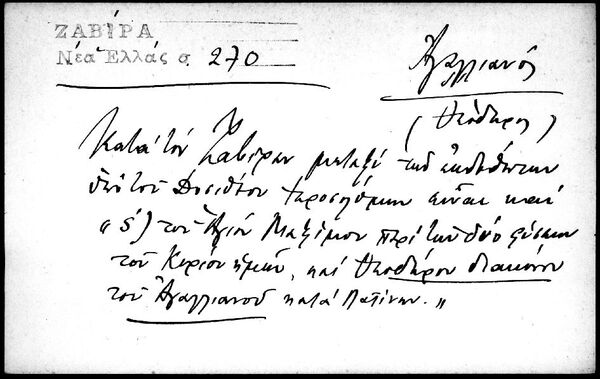 ΖΑΒΙΡΑ
Νέα Ἑλλάς σ. 270
Ἀγαλλιανός
(Θεόδωρος)
Κατὰ τὸν Ζαβίραν μεταξὺ τῶν ἐκδοθέντων
ὑπὸ τοῦ Δοσιθέου Ἱεροσολύμων εἶναι καὶ
"5) τοῦ Ἁγίου Μαξίμου περὶ τῶν δύο φύσεων
τοῦ Κυρίου ἡμῶν, καὶ Θεοδώρου διακόνου
τοῦ Ἀγαλλιανοῦ κατὰ Λατίνων."